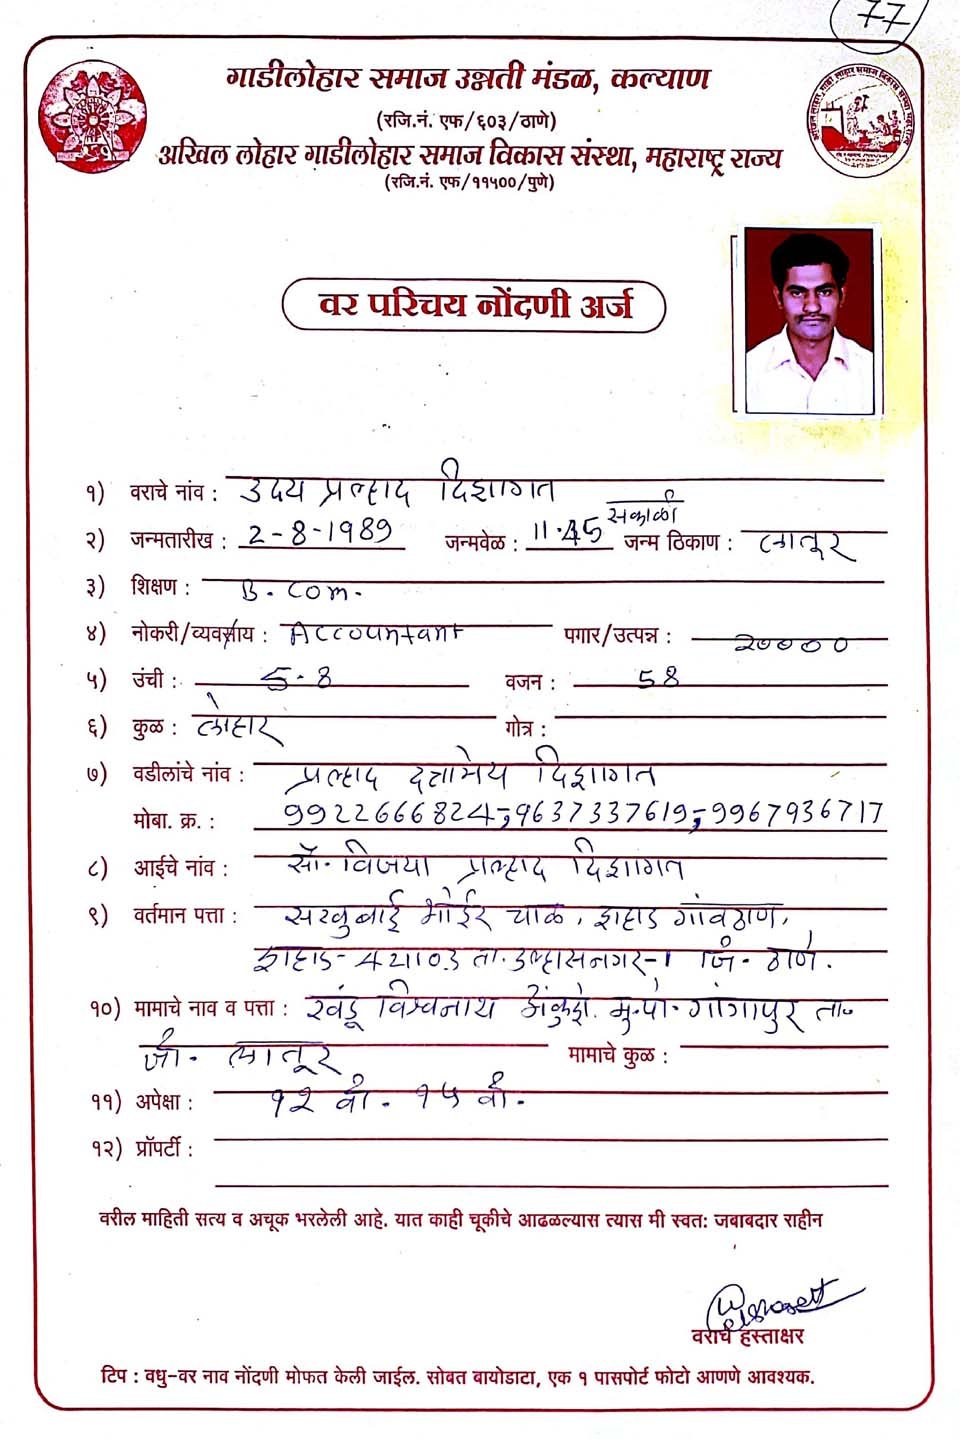 77
गाडीलोहार समाज उन्नती मंडळ, कल्याण
(रजि.नं. एफ/६०३/ठाणे)
अखिल लोहार गाडीलोहार समाज विकास संस्था, महाराष्ट्र राज्य
(रजि.नं. एफ/११५००/पुणे)
वर परिचय नोंदणी अर्ज
१) वराचे नांव : उदय प्रल्हाद दिशागत
२) जन्मतारीख : 2-8-1989 जन्मवेळ : 11.45 सकाळी जन्म ठिकाण : लातूर
३) शिक्षण : B. com.
४) नोकरी/व्यवसाय : Accountant पगार/उत्पन्न : २००००
५) उंची : 5.8 वजन : 58
६) कुळ : लोहार गोत्र :
७) वडीलांचे नांव : प्रल्हाद दत्तात्रेय दिशागत
मोबा. क्र. : 9922666824, 9637337619, 9967936717
८) आईचे नांव : सौ. विजया प्रल्हाद दिशागत
९) वर्तमान पत्ता : सखुबाई भोईर चाळ, शहाड गांवठाण,
शहाड - 421103 ता. उल्हासनगर-1 जि. ठाणे.
१०) मामाचे नाव व पत्ता : खंडू विश्वनाथ अंकुशे. मु.पो. गंगापुर ता.
जी. लातूर मामाचे कुळ :
११) अपेक्षा : १२ वी. १५ वी.
१२) प्रॉपर्टी :
वरील माहिती सत्य व अचूक भरलेली आहे. यात काही चूकीचे आढळल्यास त्यास मी स्वत: जबाबदार राहीन
वराचे हस्ताक्षर
टिप : वधु-वर नाव नोंदणी मोफत केली जाईल. सोबत बायोडाटा, एक १ पासपोर्ट फोटो आणणे आवश्यक.